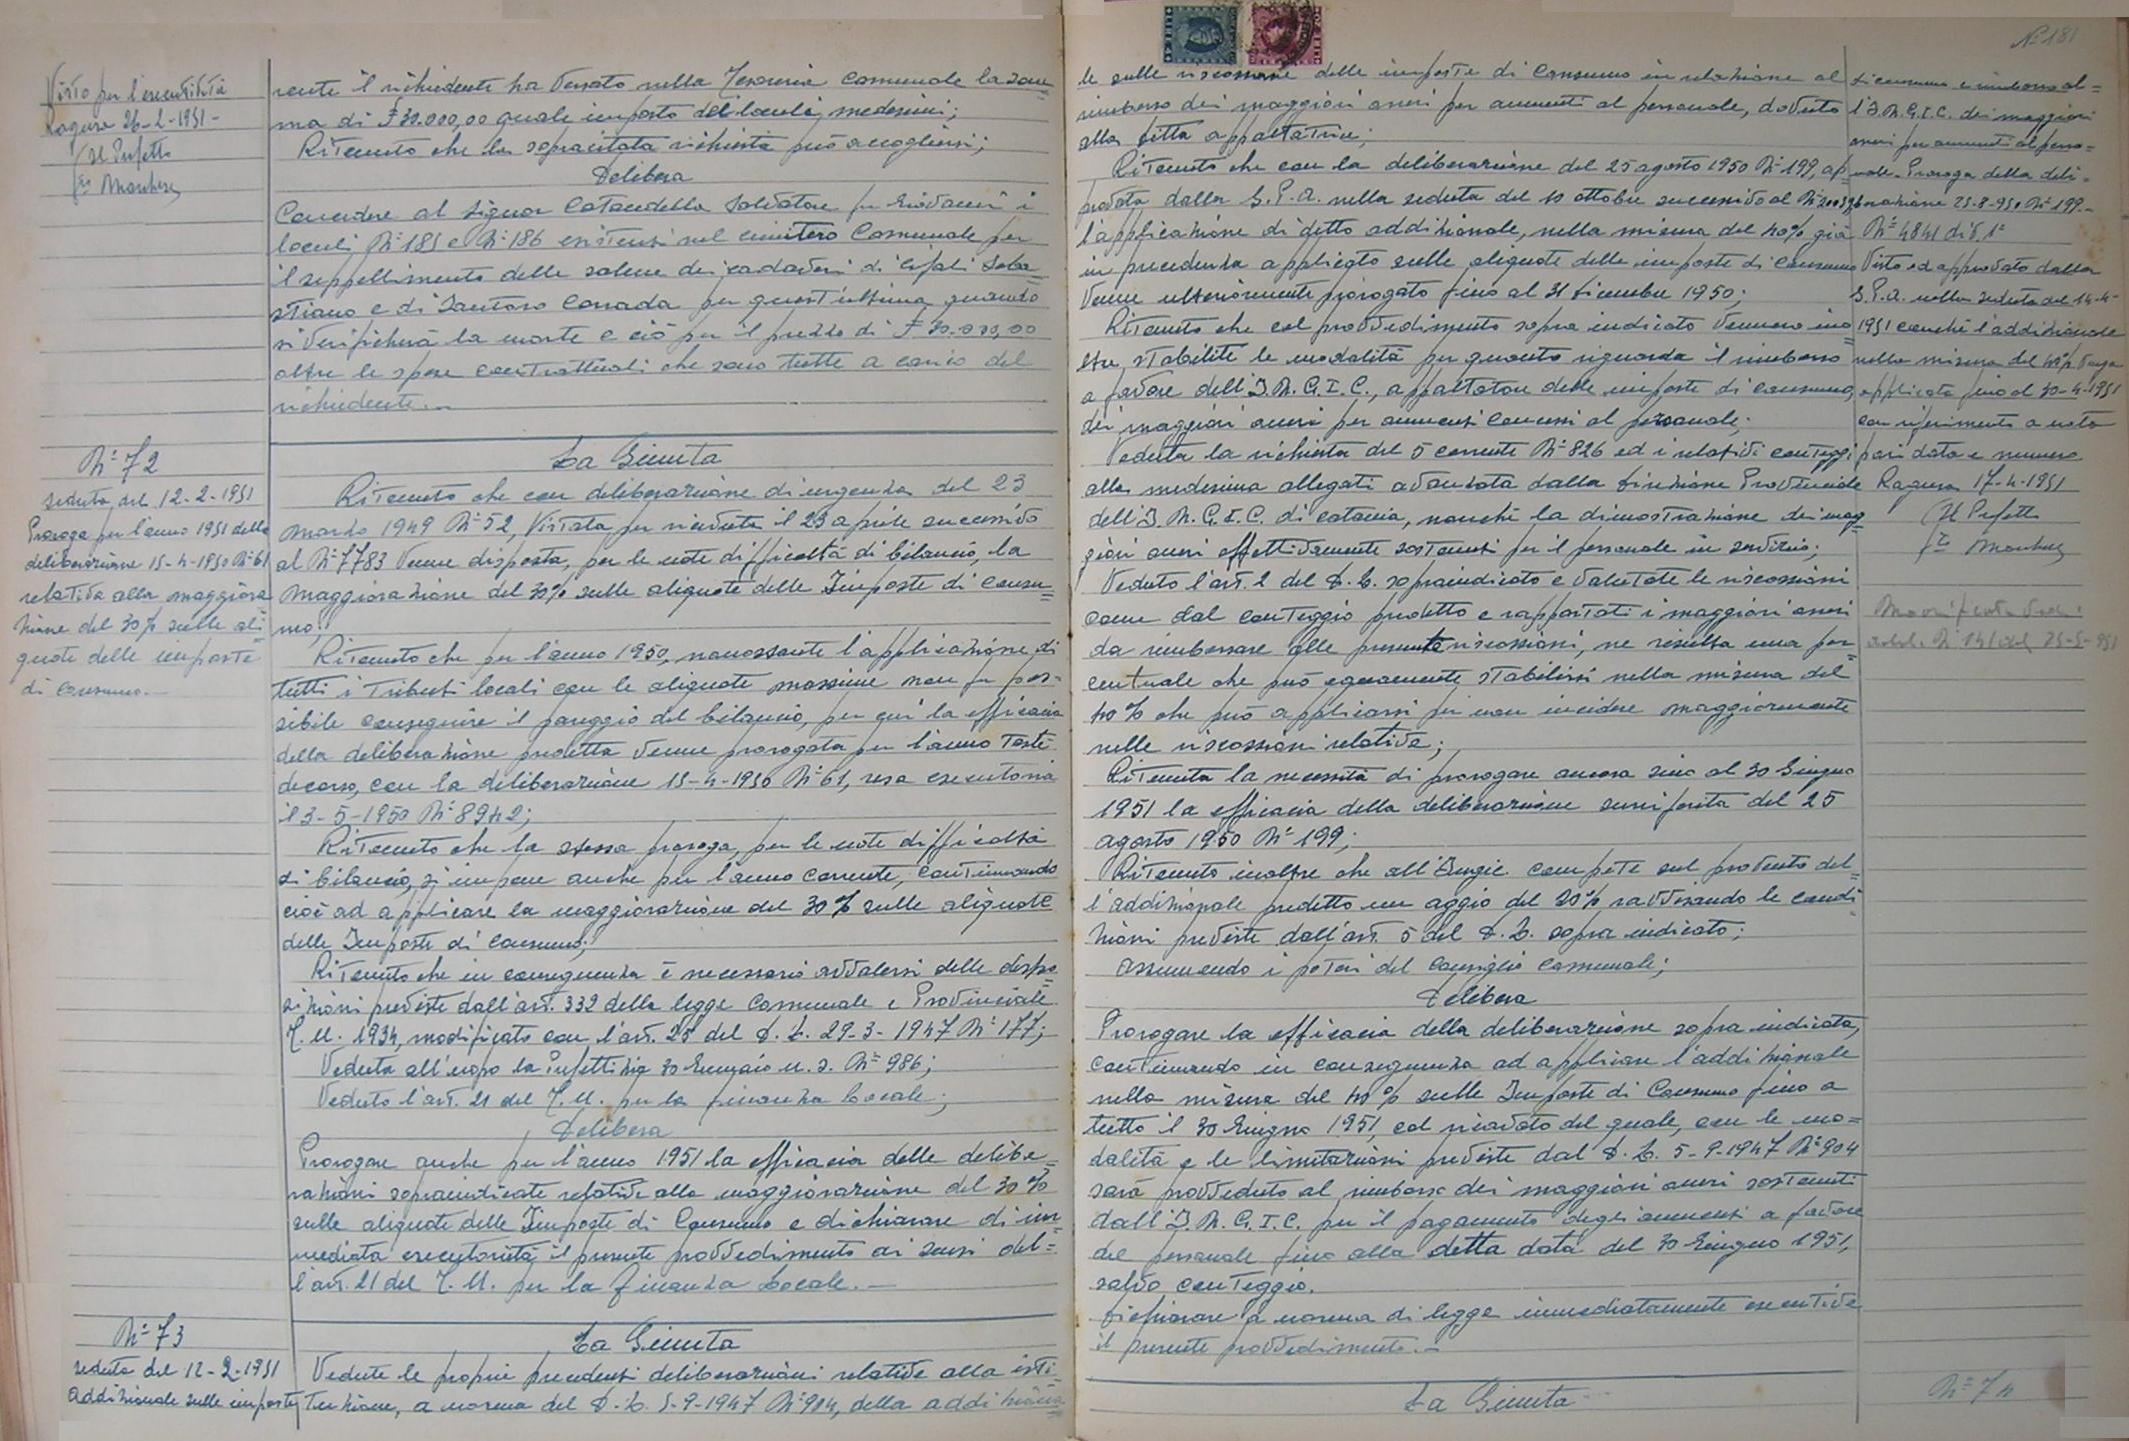 Visto per l'esecutività
Ragusa 26-2-1951-
Il Prefetto
fto
rente il richiedente ha versato nella Tesoreria Comunale la som=
ma di £ 30.000,00 quale importo dei loculi medesimi;
Ritenuto che la sopracitata richiesta può accogliersi;
Delibera
Concedere al Signor Salvatore fu Giovanni i
loculi N° 185 e N° 186 esistenti nel cimitero Comunale per
il seppellimento delle salme dei cadaveri di Seba=
stiano e di Santoro Corrada per quest'ultima quando
si verificherà la morte e ciò per il prezzo di £ 30.000,00
oltre le spese contrattuali che sono tutte a carico del
richiedente.-
N° 72
seduta del 12-2-1951
Proroga per l'anno 1951 della
deliberazione 15-4-1950 N° 61
relativa alla maggiora
zione del 30% sulle ali=
quote delle imposte
di consumo.-
La Giunta
Ritenuto che con deliberazione di urgenza del 23
marzo 1949 N° 52, vistata per ricevuta il 23 aprile successivo
al N° 7783 venne disposta, per le note difficoltà di bilancio, la
maggiorazione del 30% sulle aliquote delle Imposte di consu=
mo;
Ritenuto che per l'anno 1950, nonostante l'applicazione di
tutti i Tributi locali con le aliquote massime non fu pos=
sibile conseguire il pareggio del bilancio, per cui la efficacia
della deliberazione predetta venne prorogata per l'anno testè
decorso, con la deliberazione 15-4-1950 N° 61, resa esecutoria
il 3-5-1950 N° 8942;
Ritenuto che la stessa proroga, per le note difficoltà
di bilancio, si impone anche per l'anno corrente, continuando
cioè ad applicare la maggiorazione del 30% sulle aliquote
delle Imposte di Consumo;
Ritenuto che in conseguenza è necessario avvalersi delle dispo
sizioni previste dall'art. 332 della legge Comunale e Provinciale
T.U. 1934, modificato con l'art. 25 del D.L. 29-3-1947 N° 177;
Veduta all'uopo la Prefettizia 30 Gennaio u.s. N° 986;
Veduto l'art. 21 del T.U. per la finanza Locale;
Delibera
Prorogare anche per l'anno 1951 la efficacia delle delibe=
razioni sopraindicate relative alla maggiorazione del 30%
sulle aliquote delle Imposte di Consumo e dichiarare di im=
mediata esecutorietà il presente provvedimento ai sensi del=
l'art. 21 del T.U. per la finanza Locale.-
N° 73
seduta del 12-2-1951
Addizionale sulle imposte
La Giunta
Vedute le proprie precedenti deliberazioni relative alla isti=
tuzione, a norma del D.L. 5-9-1947 N° 904, della addiziona=
N° 181
le sulle riscossioni delle imposte di Consumo in relazione al
rimborso dei maggiori oneri per aumenti al personale, dovuto
alla Ditta appaltatrice;
Ritenuto che con la deliberazione del 25 agosto 1950 N° 199, ap=
provata dalla G.P.A. nella seduta del 10 ottobre successivo al N°
l'applicazione di detto addizionale, nella misura del 40% già
in precedenza applicato sulle aliquote delle imposte di Consumo
venne ulteriormente prorogato fino al 31 Dicembre 1950;
Ritenuto che col provvedimento sopra indicato vennero ino=
ltre stabilite le modalità per quanto riguarda il rimborso
a favore dell'I.N.G.I.C., appaltatore delle imposte di consumo,
dei maggiori oneri per aumenti concessi al personale;
Veduta la richiesta del 5 corrente N° 826 ed i relativi conteggi
alla medesima allegati avanzata dalla Direzione Provinciale
dell'I.N.G.I.C. di Catania, nonchè la dimostrazione dei mag=
giori oneri effettivamente sostenuti per il personale in servizio;
Veduto l'art. 2 del D.L. sopraindicato e valutate le riscossioni
come dal conteggio predetto e rapportati i maggiori oneri
da rimborsare alle presunte riscossioni, ne risulta una per=
centuale che può equamente stabilirsi nella misura del
40% che può applicarsi per non incidere maggiormente
nelle riscossioni relative;
Ritenuta la necessità di prorogare ancora sino al 30 Giugno
1951 la efficacia della deliberazione surriferita del 25
agosto 1950 N° 199;
Ritenuto inoltre che all'Ingic compete sul provento del=
l'addizionale predetto un aggio del 20% ravvisando le condi=
zioni previste dall'art. 5 del D.L. sopra indicato;
Assumendo i poteri del Consiglio Comunale;
Delibera
Prorogare la efficacia della deliberazione sopra indicata,
continuando in conseguenza ad applicare l'addizionale
nella misura del 40% sulle Imposte di Consumo fino a
tutto il 30 Giugno 1951, col ricavato del quale, con le mo=
dalità e le limitazioni previste dal D.L. 5-9-1947 N° 904
sarà provveduto al rimborso dei maggiori oneri sostenuti
dall'I.N.G.I.C. per il pagamento degli aumenti a favore
del personale fino alla detta data del 30 Giugno 1951,
salvo conteggio.
Dichiarare a norma di legge immediatamente esecutivo
il presente provvedimento.-
La Giunta
di consumo e rimborso al=
l'I.N.G.I.C. dei maggiori
oneri per aumenti al perso=
nale. Proroga della deli=
berazione 25-8-950 N° 199.-
N° 4841 div. 1ª
Visto ed approvato dalla
G.P.A. nella seduta del 14-4-
1951 con chè l'addizionale
nella misura del 40% venga
applicata fino al 30-4-1951
con riferimento a nota
pari data e numero
Ragusa 17-4-1951
Il Prefetto
fto
Modificata
delib. N° 141 del 25-5-951
N° 74